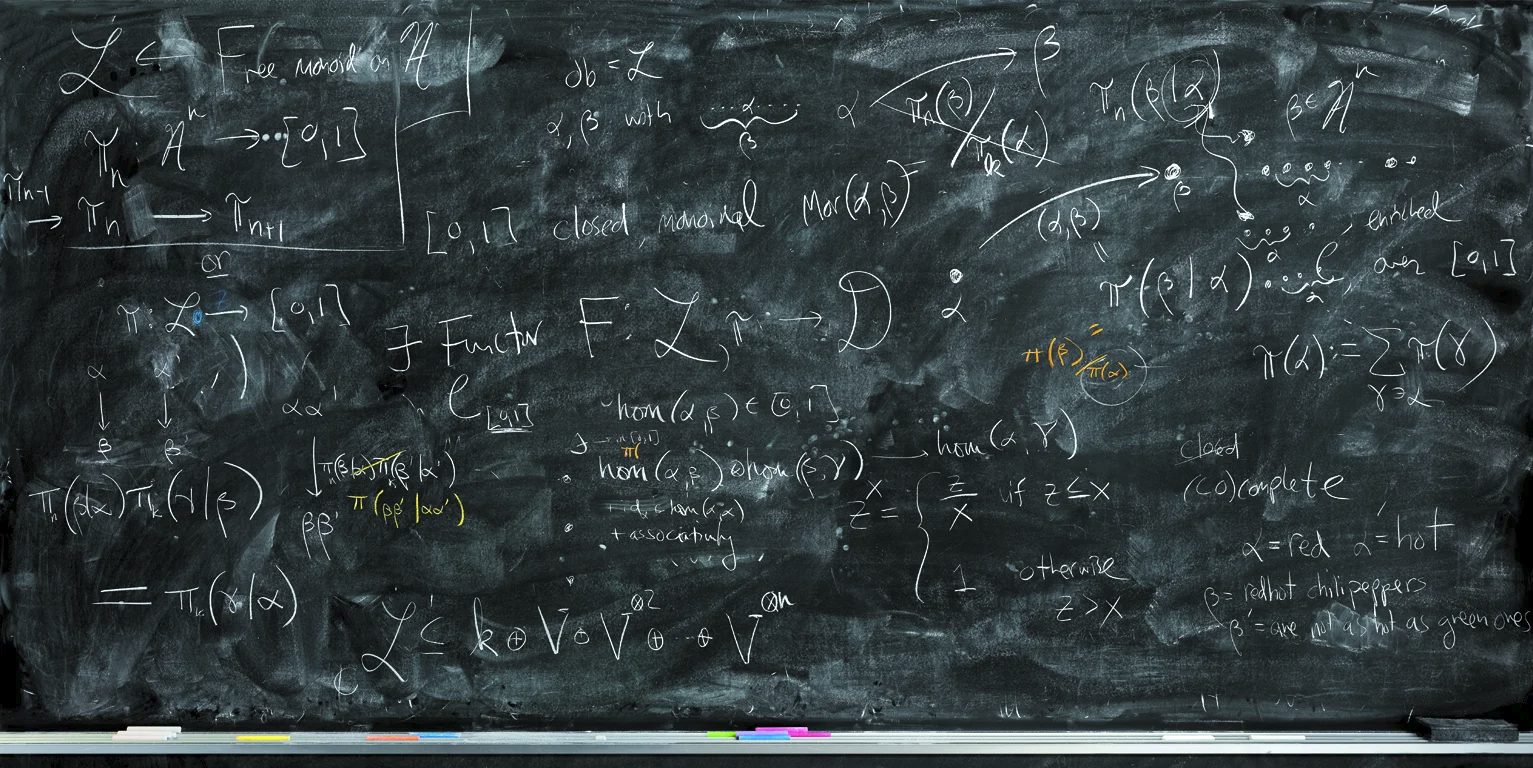 ℒ ← Free monoid on 𝒜
πₙ : 𝒜ⁿ → [0,1]
πₙ₋₁ → πₙ → πₙ₊₁
or
π : ℒ → [0,1]
α α'
↓ ↓
β β'
πₙ(β|α) πₖ(γ|β)
= πₖ(γ|α)
αα'
↓ πₙ(β|α) πₖ(β'|α')
π(ββ'|αα')
ββ'
ob = ℒ
α, β with α β
α → β
πₙ(β)/πₖ(α)
[0,1] closed, monoidal Mor(α,β) =
∃ Functor F : ℒ, π → 𝒟
𝒞[0,1]
hom(α,β) ∈ [0,1]
in [0,1]
π(
hom(α,β) ⊗ hom(β,γ) → hom(α,γ)
+ associativity
ℒ ⊆ k ⊕ V ⊕ V⊗2 ⊕ ... ⊕ V⊗n
zˣ = { z/x if z ≤ x
1 otherwise
z > x
πₙ(β|α) β ∈ 𝒜ⁿ
β
α
(α,β)
=
α
π(β|α)
α
α
𝒞, enriched
over [0,1]
=
π(β)/π(α)
π(α) := Σ π(γ)
γ∋α
closed
(co)complete
α = red α' = hot
β = red hot chili peppers
β' = are not as hot as green ones